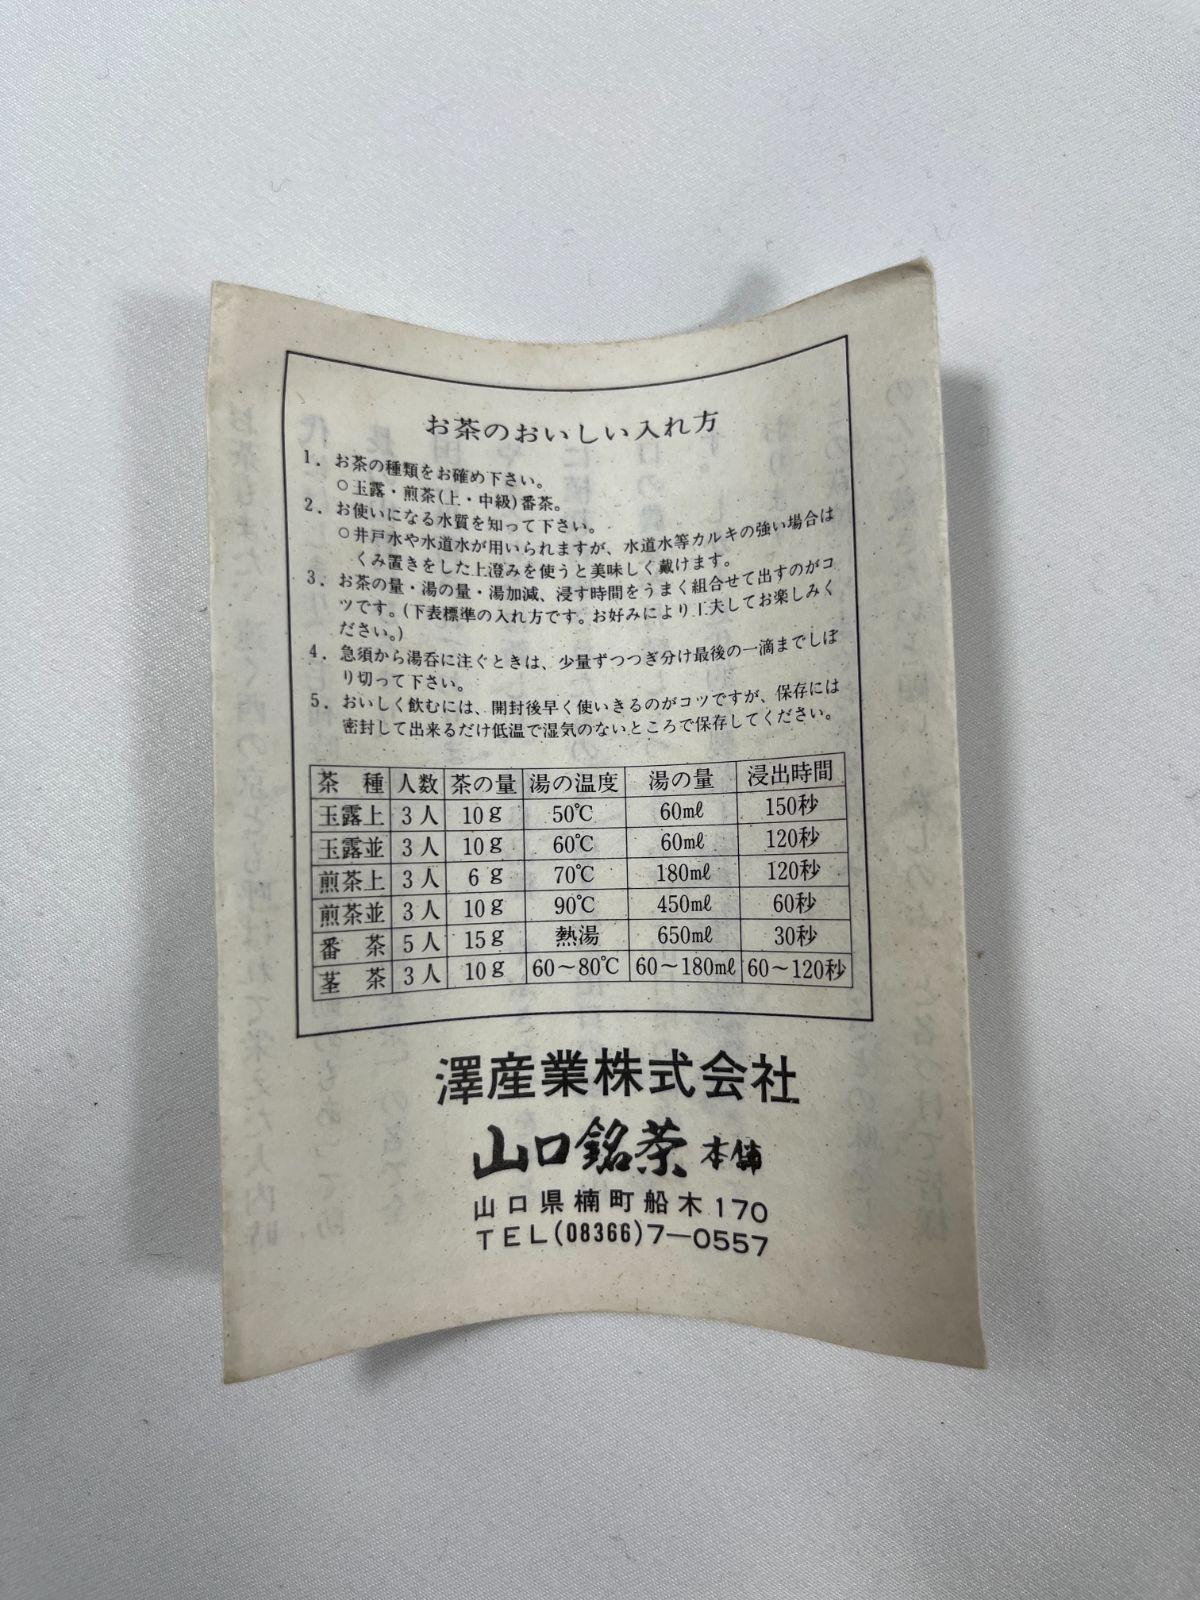 お茶のおいしい入れ方
1. お茶の種類をお確め下さい。
○玉露・煎茶(上・中級)番茶。
2. お使いになる水質を知って下さい。
○井戸水や水道水が用いられますが、水道水等カルキの強い場合は
くみ置きをした上澄みを使うと美味しく戴けます。
3. お茶の量・湯の量・湯加減、浸す時間をうまく組合せて出すのがコ
ツです。(下表標準の入れ方です。お好みにより工夫してお楽しみく
ださい。)
4. 急須から湯呑に注ぐときは、少量ずつつぎ分け最後の一滴までしぼ
り切って下さい。
5. おいしく飲むには、開封後早く使いきるのがコツですが、保存には
密封して出来るだけ低温で湿気のないところで保存してください。
茶種 人数 茶の量 湯の温度 湯の量 浸出時間
玉露上 3人 10g 50℃ 60mℓ 150秒
玉露並 3人 10g 60℃ 60mℓ 120秒
煎茶上 3人 6g 70℃ 180mℓ 120秒
煎茶並 3人 10g 90℃ 450mℓ 60秒
番茶 5人 15g 熱湯 650mℓ 30秒
茎茶 3人 10g 60〜80℃ 60〜180mℓ 60〜120秒
澤産業株式会社
山口銘茶本舗
山口県楠町船木170
TEL(08366)7―0557